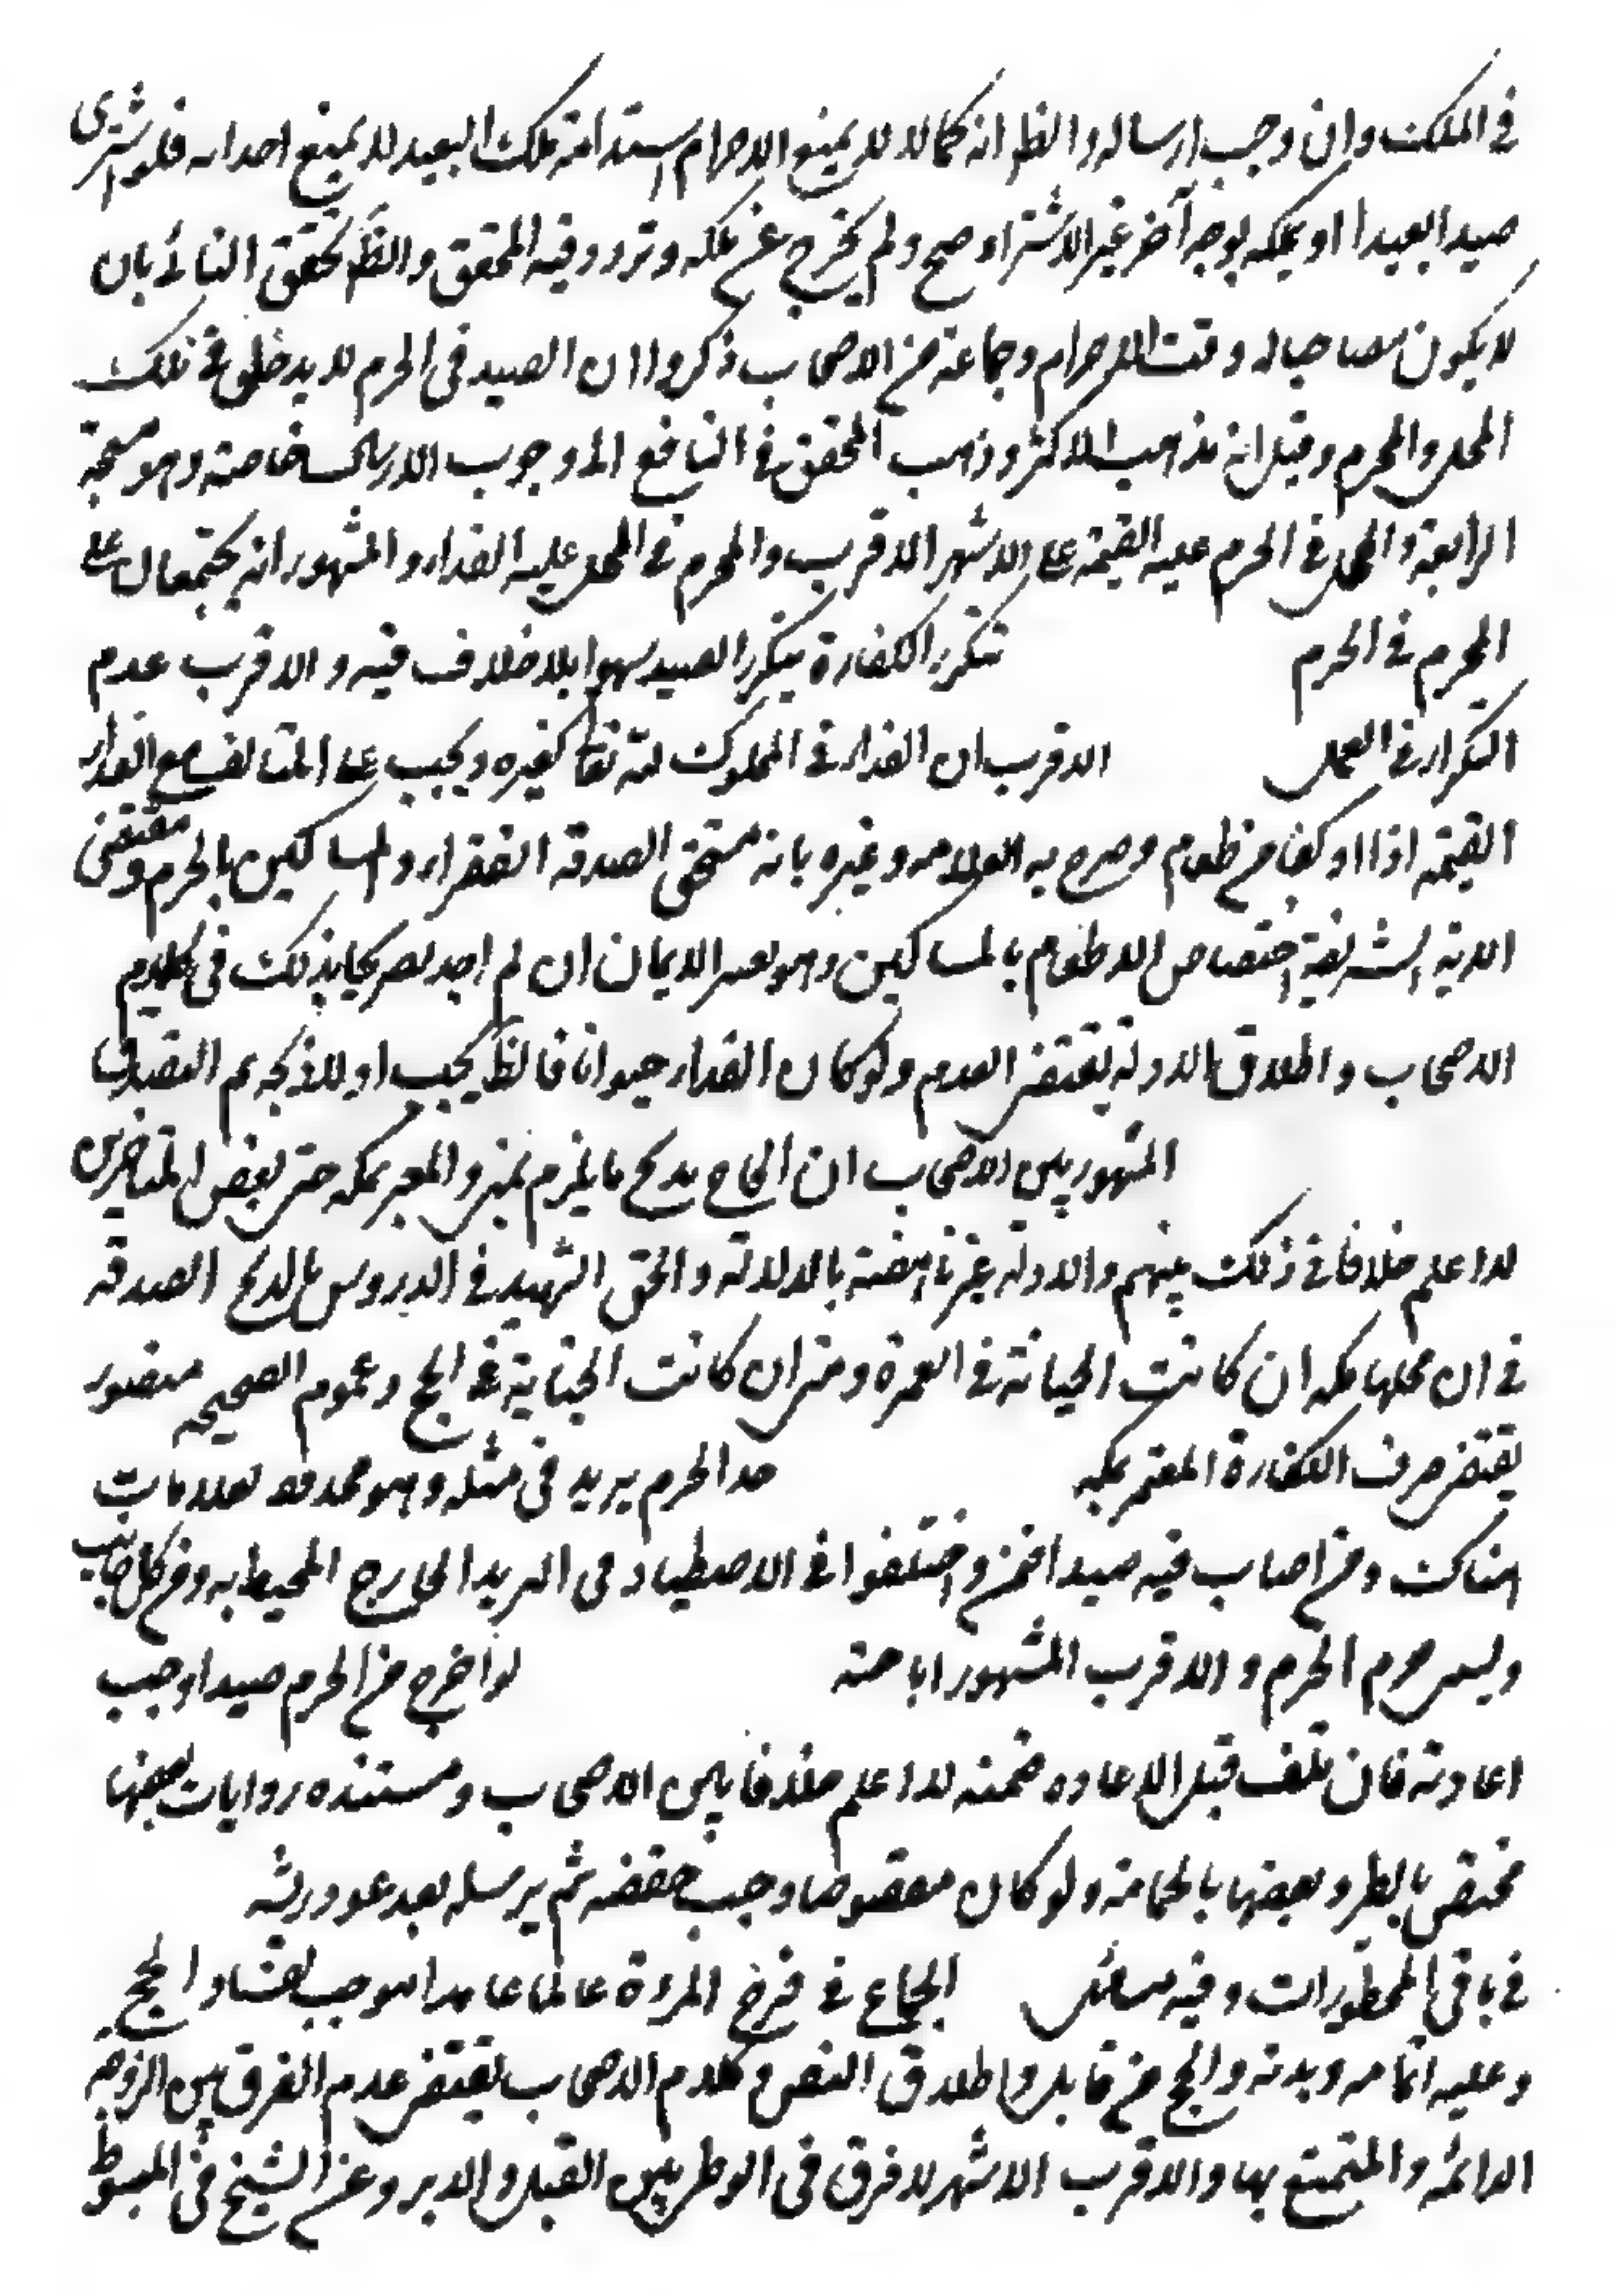 في الملك وان وجب ارساله والظ انه كما لا يمنع الاحرام استدامة ملك البعيد لا يمنع احداثه فلو اشترى
صيدا بعيدا او يملكه بوجه آخر غير الاشتراء صح ولم يخرج عن ملكه وتردد فيه المحقق والظ تحقق النائي بان
لا يكون مصاحبا له وقت الاحرام وجماعة من الاصحاب ذكروا ان الصيد في الحرم لا يدخل في ملك
المحل والمحرم وقيل انه مذهب الاكثر وذهب المحقق في النافع الى وجوب الارسال خاصة وهو متجه
الرابعة المحل في الحرم عليه القيمة على الاشهر الاقرب والمحرم في المحل عليه الفداء والمشهور انه يجتمعان على
المحرم في الحرم تتكرر الكفارة بتكرر الصيد سهوا بلا خلاف فيه والاقرب عدم
التكرار في العمد الاقرب ان الفداء في المملوك لله تعالى كغيره ويجب على المتلف مع الفداء
القيمة اذا او كفا من طعام وصرح به العلامه وغيره بانه مستحق الصدقة الفقراء والمساكين بالحرم ومقتضى
الاية الشريفة اختصاص الاطعام بالمساكين وهو يعتبر الايمان ان لم اجد تصريحا بذلك في كلام
الاصحاب واطلاق الادلة يقتضى العدم ولو كان الفداء حيوانا فالظ يجب اولا ذبحه ثم التصدق بها
المشهور بين الاصحاب ان الحاج يذبح ما يلزم بمنى والمعتمر بمكه حتى بعض المتاخرين
لا اعلم خلافا في ذلك بينهم والادلة غير ناهضة بالدلالة والحق الشهيد في الدروس بالذبح الصدقة
في ان محلها مكه ان كانت الجناية في العمرة ومنى ان كانت الجناية في الحج وعموم الصحيحه منصور
يقتضى صرف الكفارة المعتمر بمكه حد الحرم بريد في مثله وهو محدود بعلامات
هناك ومن اصاب فيه صيدا ضمن واختلفوا في الاصطياد في البريد الخارج المحيط به ومن كل جانب
وليس حرم الحرم والاقرب المشهور اباحته لو اخرج من الحرم صيدا وجب
اعادته فان تلف قبل الاعاده ضمنه لا اعلم خلافا بين الاصحاب ومستنده روايات بعضها
مختص بالطير وبعضها بالحمامة ولو كان مقصوصا وجب حفظه ثم يرسله بعد عود ريشه
في باقي المحظورات وفيه مسائل الجماع في فرج المرءة عالما عامدا موجب لفساد الحج
وعليه اتمامه وبدنة والحج من قابل واطلاق النص وكلام الاصحاب يقتضى عدم الفرق بين الزوجه
الدائمه والمتمتع بها والاقرب الاشهر لا فرق في الوطى بين القبل والدبر وعن الشيخ في المبسوط